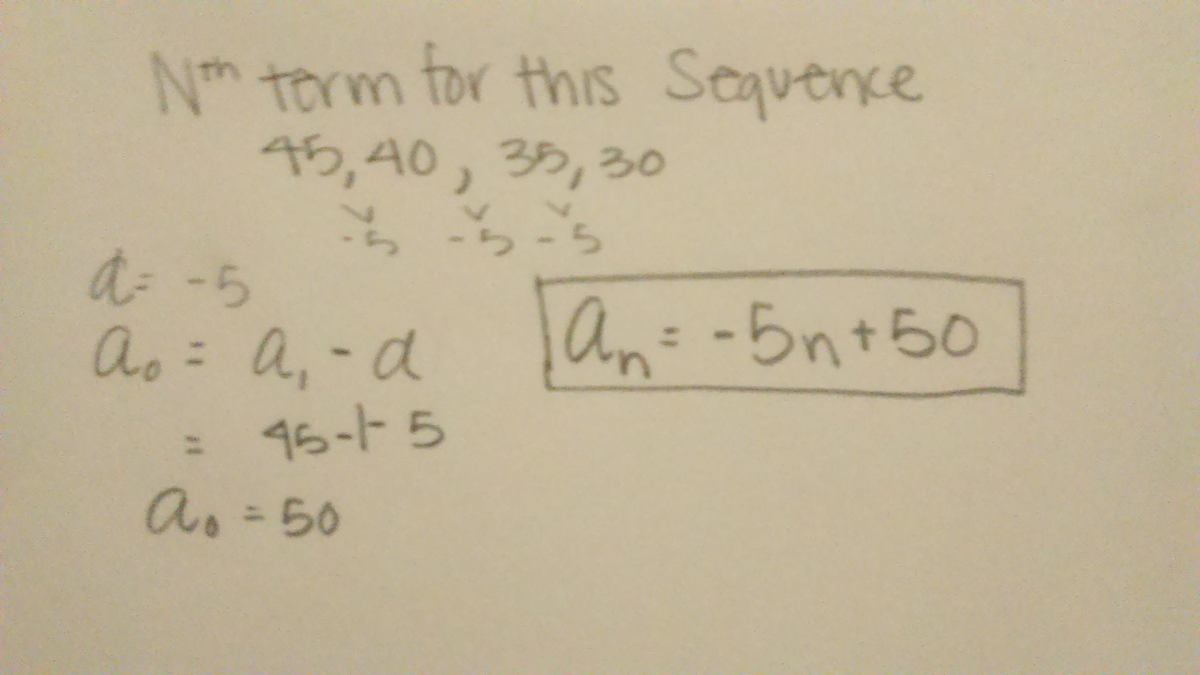 Nth term for this Sequence
45, 40, 35, 30
-5 -5 -5
d = -5
a₀ = a₁ - d
= 45 - - 5
a₀ = 50
aₙ = -5n + 50